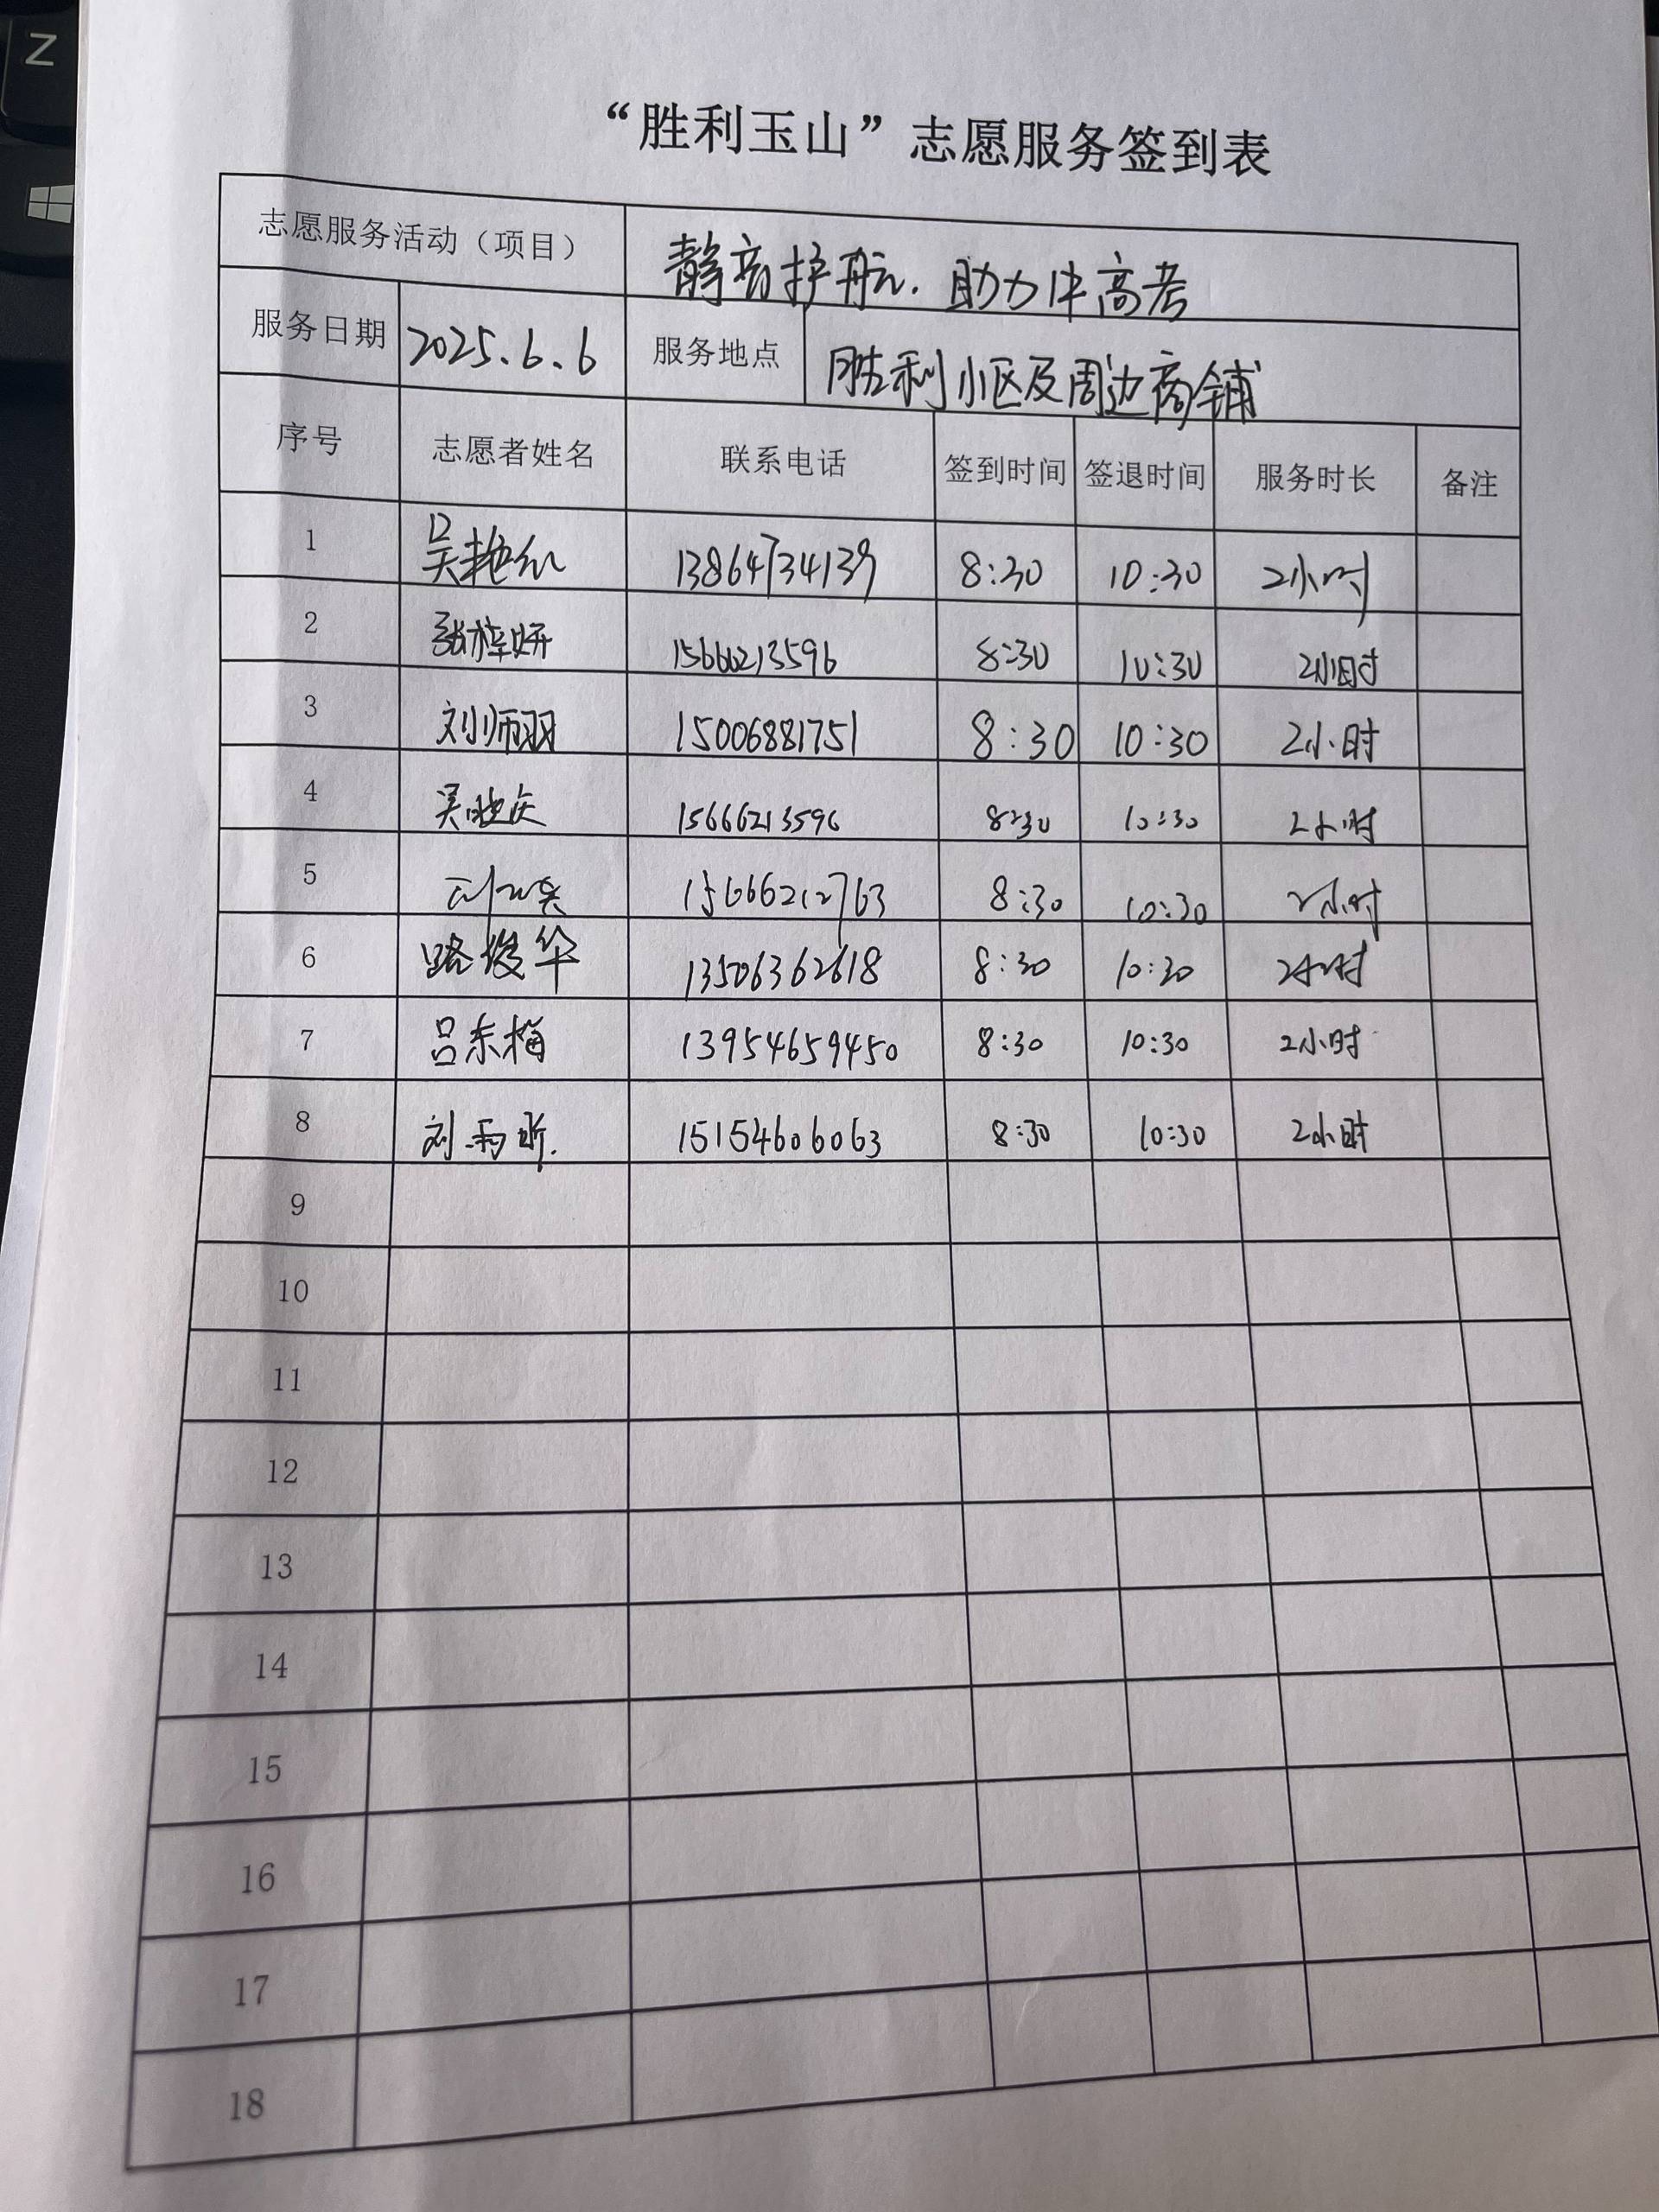 Z
“胜利玉山”志愿服务签到表
志愿服务活动（项目） 静音护航.助力中高考
服务日期 2025.6.6 服务地点 胜利小区及周边商铺
序号 志愿者姓名 联系电话 签到时间 签退时间 服务时长 备注
1 吴艳红 13864734139 8:30 10:30 2小时
2 张梓妍 15666213596 8:30 10:30 2小时
3 刘师羽 15006881751 8:30 10:30 2小时
4 吴晓庆 15666213596 8:30 10:30 2小时
5 15666212763 8:30 10:30 2小时
6 路俊华 13506362618 8:30 10:30 2小时
7 吕东梅 13954659450 8:30 10:30 2小时
8 刘雨昕. 15154606063 8:30 10:30 2小时
9
10
11
12
13
14
15
16
17
18